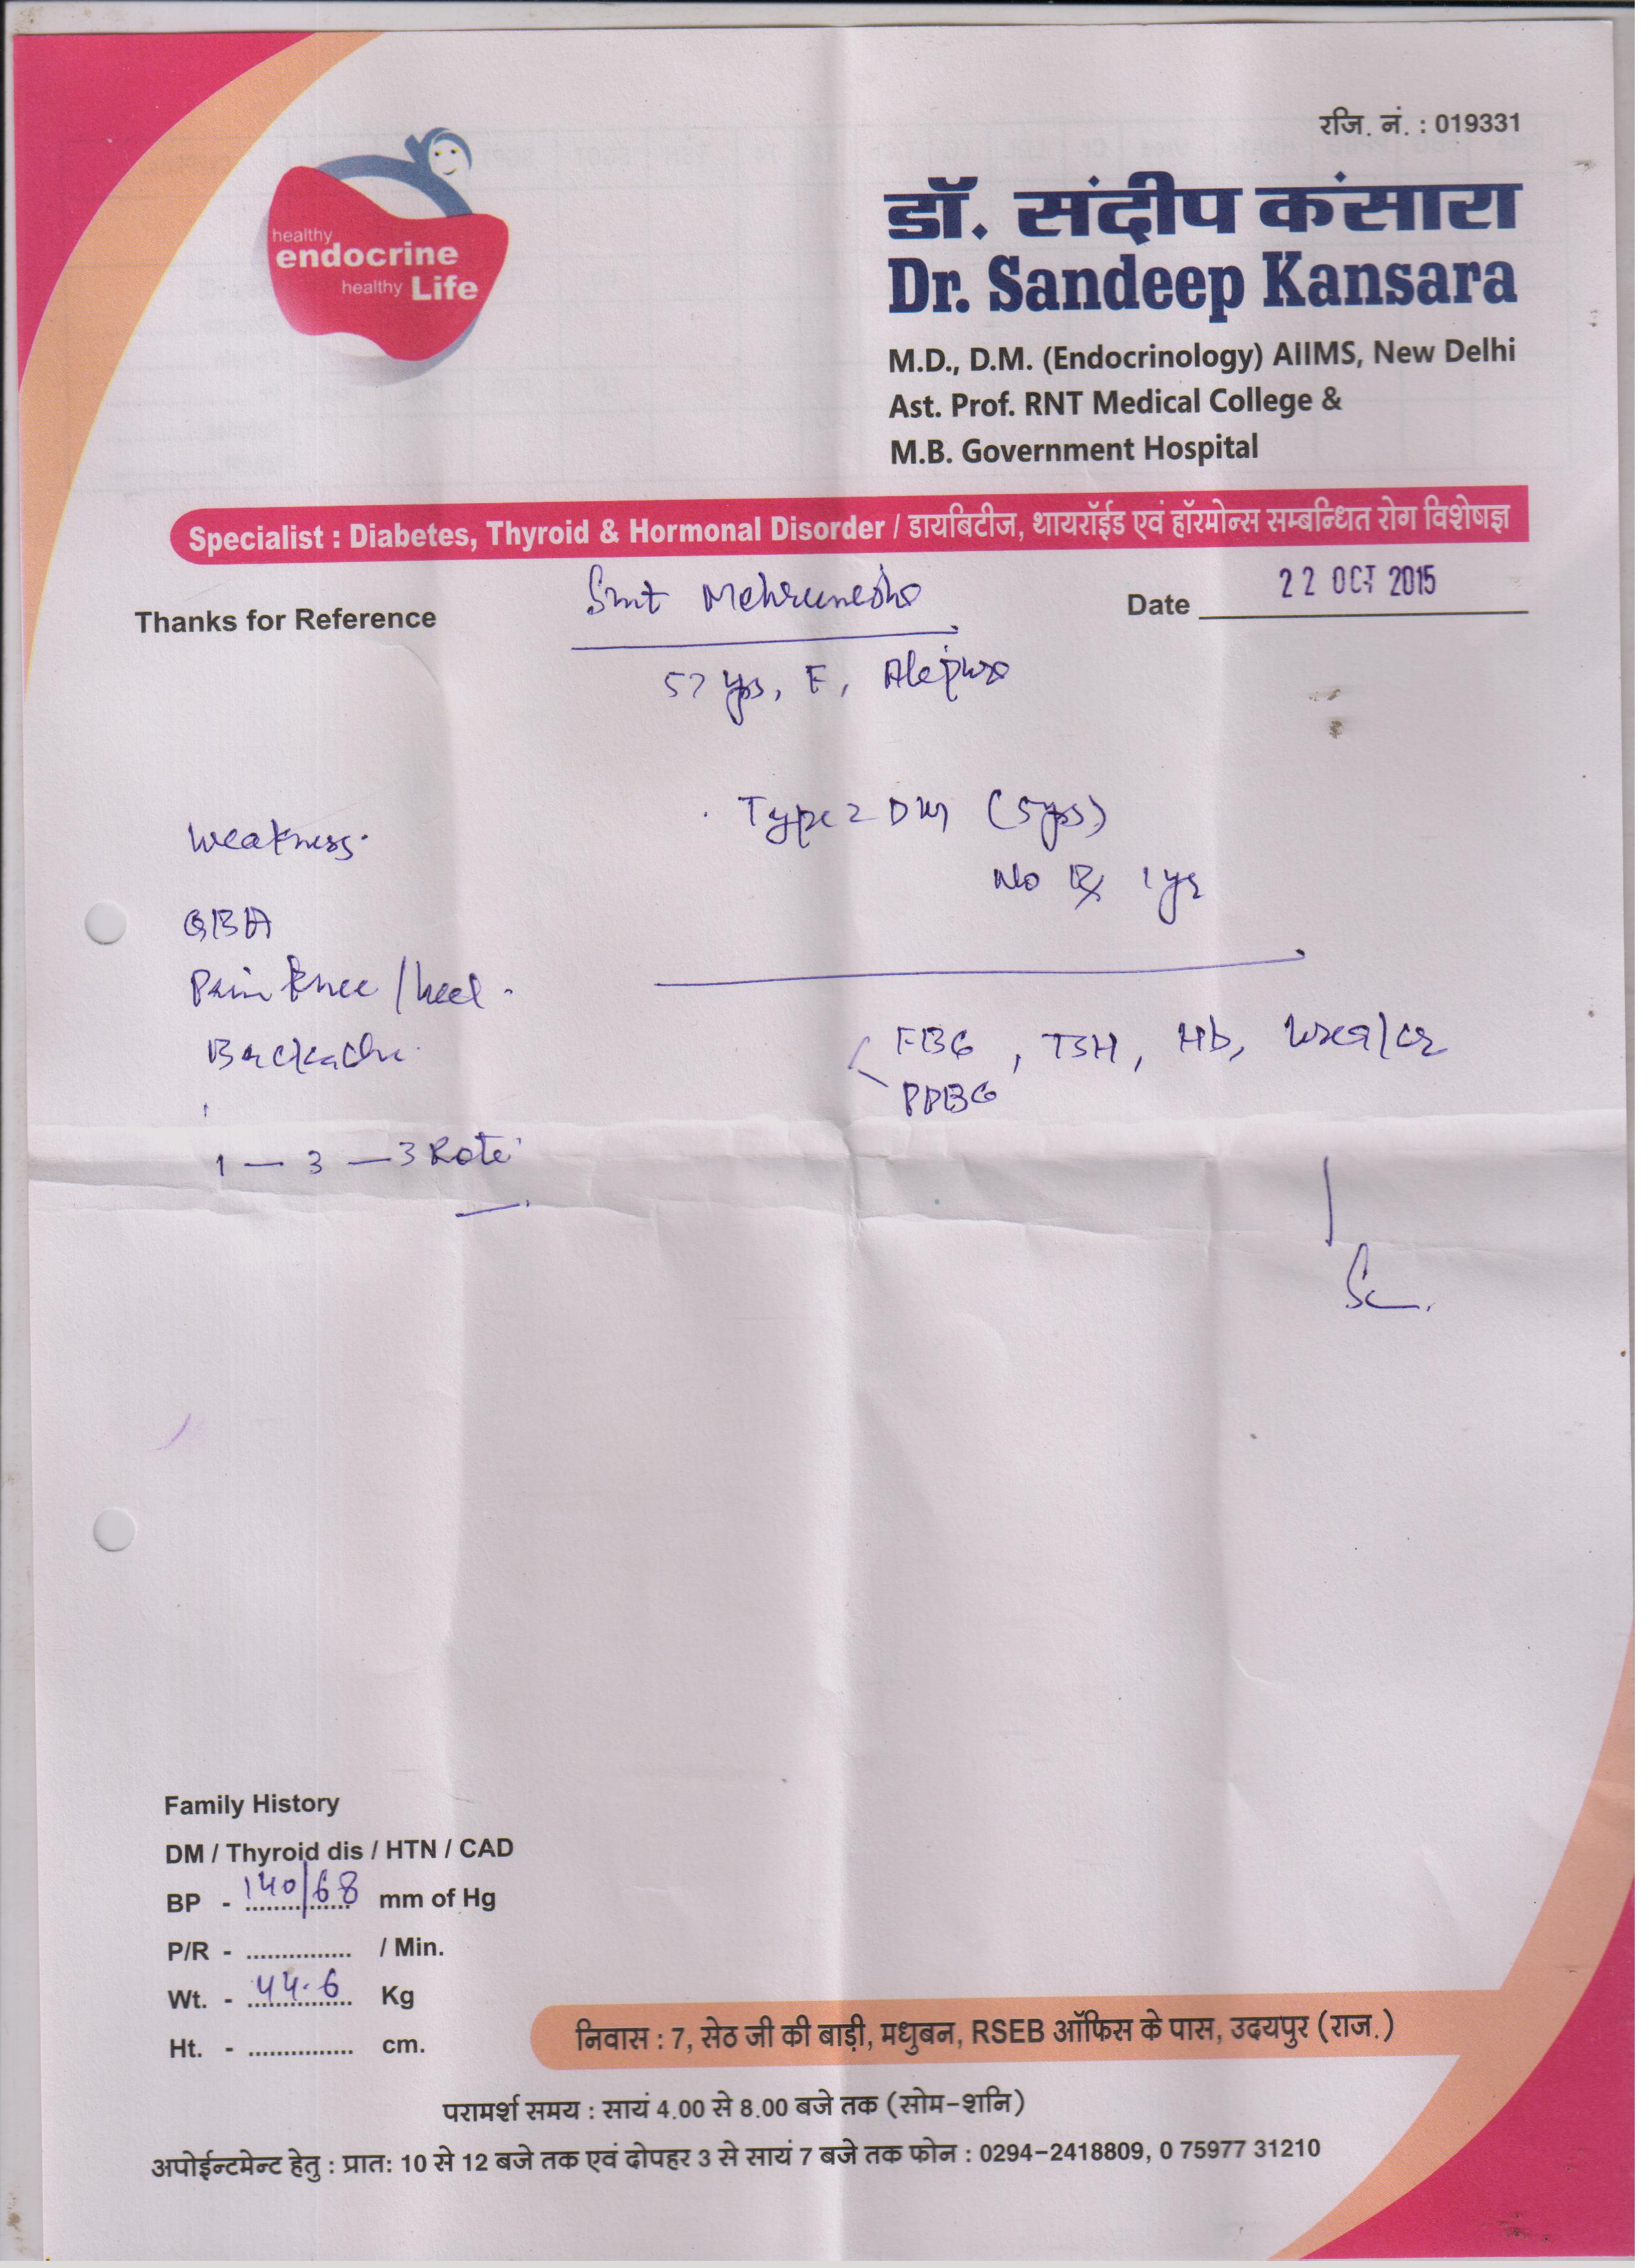 रजि. नं. : 019331
healthy
endocrine
healthy Life
डॉ. संदीप कंसारा
Dr. Sandeep Kansara
M.D., D.M. (Endocrinology) AIIMS, New Delhi
Ast. Prof. RNT Medical College &
M.B. Government Hospital
Specialist : Diabetes, Thyroid & Hormonal Disorder / डायबिटीज, थायरॉईड एवं हॉरमोन्स सम्बन्धित रोग विशेषज्ञ
Thanks for Reference
Smt
Date 22 OCT 2015
57 yrs, F,
Type 2 DM (5yrs)
Weakness.
No Rx 1 yr
GBA
Pain knee / heel.
Backache.
FBG, TSH, Hb, urea/cr
PPBG
1 — 3 — 3 Roti
Family History
DM / Thyroid dis / HTN / CAD
BP - 140/68 mm of Hg
P/R - ............... / Min.
Wt. - 44.6 Kg
Ht. - ............... cm.
निवास : 7, सेठ जी की बाड़ी, मधुबन, RSEB ऑफिस के पास, उदयपुर (राज.)
परामर्श समय : सायं 4.00 से 8.00 बजे तक (सोम-शनि)
अपोईन्टमेन्ट हेतु : प्रातः 10 से 12 बजे तक एवं दोपहर 3 से सायं 7 बजे तक फोन : 0294-2418809, 0 75977 31210